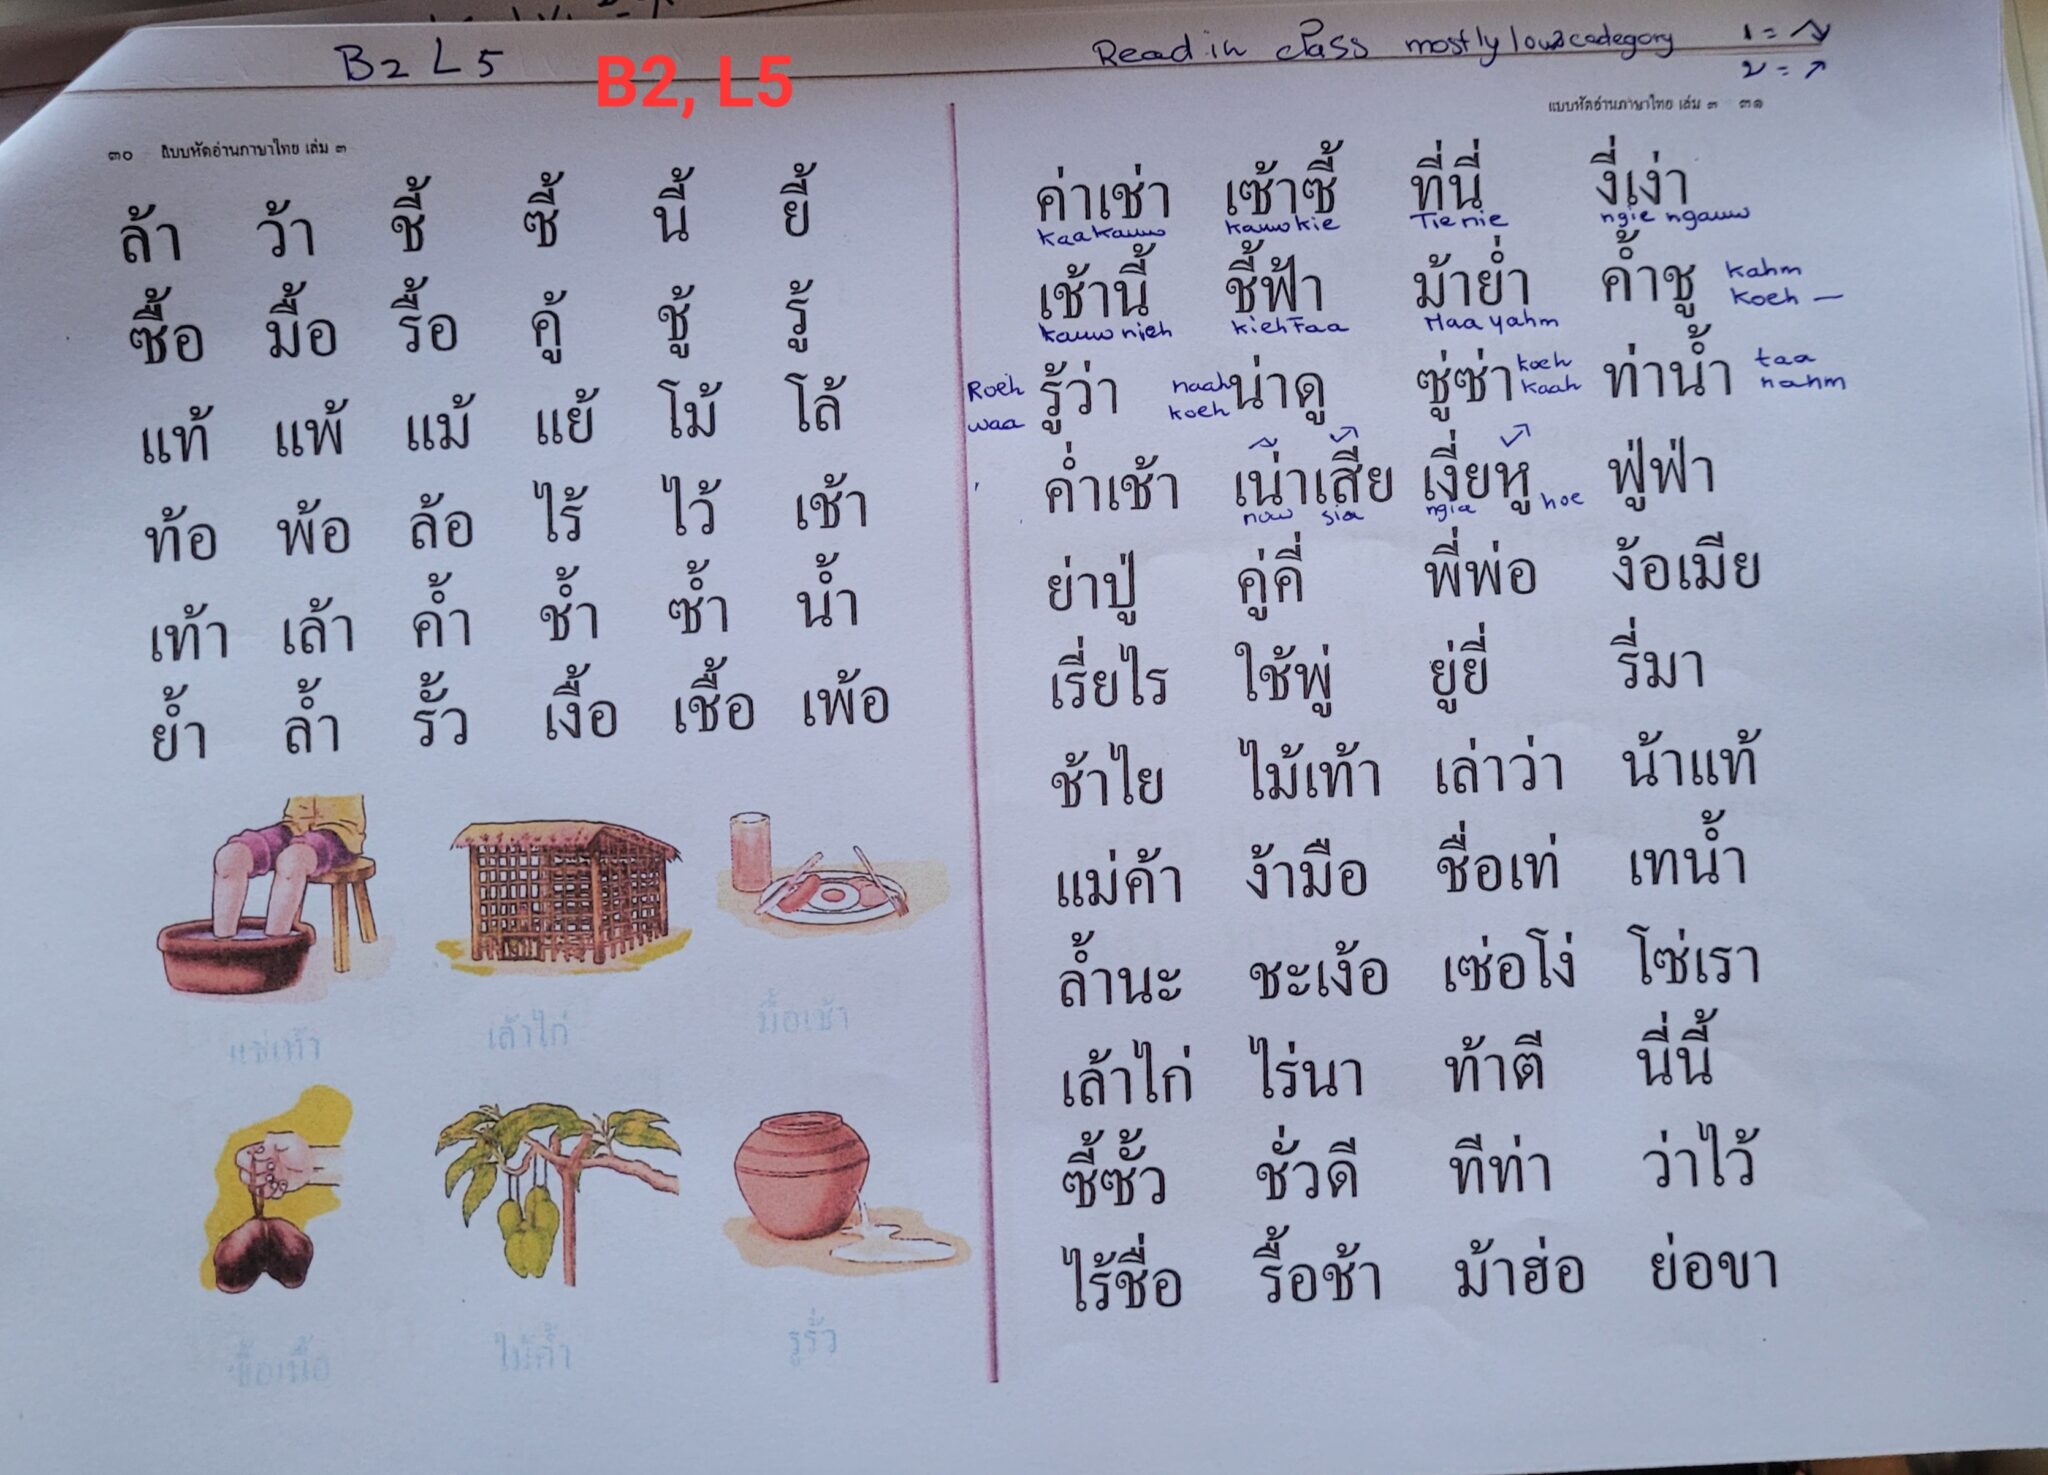 B2 L5
B2, L5
Read in class mostly low category 1 = ↘
2 = ↗
๓๐ แบบหัดอ่านภาษาไทย เล่ม ๓
ล้า ว้า ชี้ ซี้ นี้ ยี้
ซื้อ มื้อ รื้อ คู้ ชู้ รู้
แท้ แพ้ แม้ แย้ โม้ โล้
ท้อ พ้อ ล้อ ไร้ ไว้ เช้า
เท้า เล้า ค้ำ ช้ำ ซ้ำ น้ำ
ย้ำ ล้ำ รั้ว เงื้อ เชื้อ เพ้อ
แช่เท้า เล้าไก่ มื้อเช้า
ซื้อเนื้อ ไม้ค้ำ รูรั่ว
แบบหัดอ่านภาษาไทย เล่ม ๓ ๓๑
ค่าเช่า เซ้าซี้ ที่นี่ งี่เง่า
kaakauw kauwkie Tienie ngie ngauw
เช้านี้ ชี้ฟ้า ม้าย่ำ ค้ำชู kahm
koeh —
kauw nieh kiehFaa Maa yahm
Roeh waa รู้ว่า naah koeh น่าดู ซู่ซ่า koeh kaah ท่าน้ำ taa nahm
ค่ำเช้า เน่าเสีย เงี่ยหู ฟู่ฟ่า
now sia ngia hoe
ย่าปู่ คู่คี่ พี่พ่อ ง้อเมีย
เรี่ยไร ใช้พู่ ยู่ยี่ รี่มา
ช้าไย ไม้เท้า เล่าว่า น้าแท้
แม่ค้า ง้ามือ ชื่อเท่ เทน้ำ
ล้ำนะ ชะเง้อ เซ่อโง่ โซ่เรา
เล้าไก่ ไร่นา ท้าตี นี่นี้
ซี้ซั้ว ชั่วดี ทีท่า ว่าไว้
ไร้ชื่อ รื้อช้า ม้าฮ่อ ย่อขา